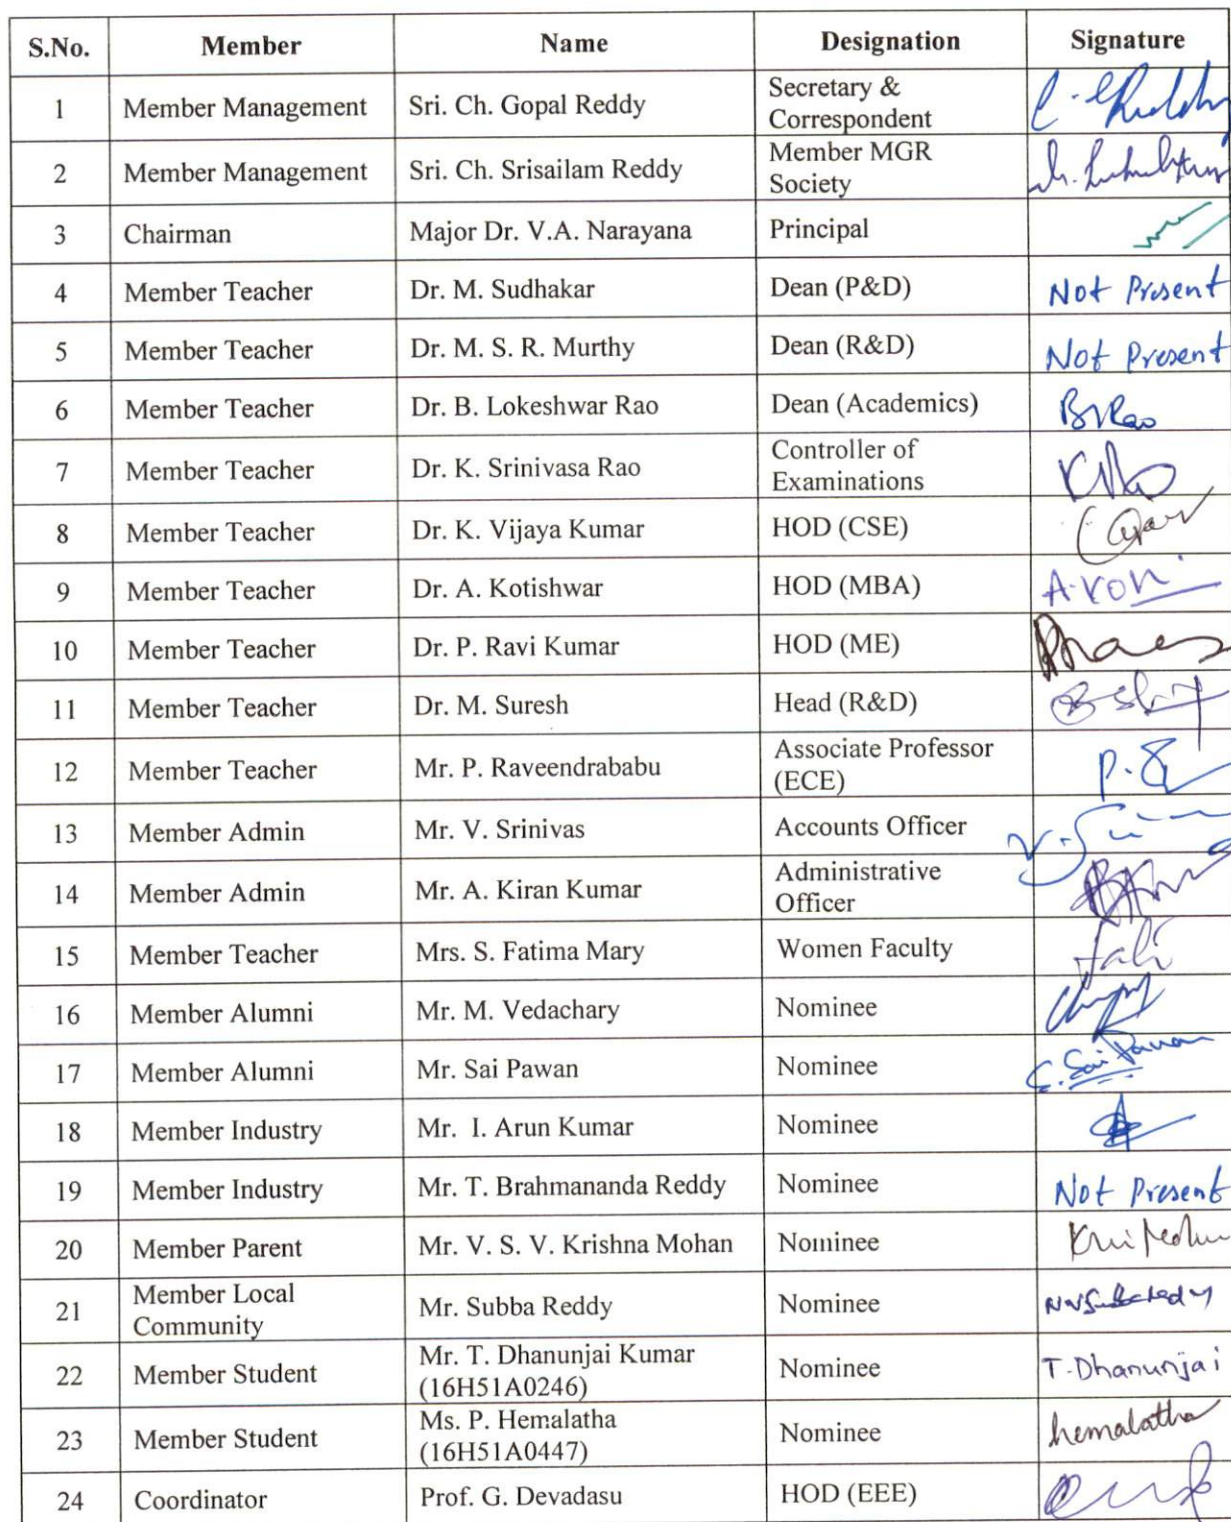 S.No. Member Name Designation Signature
1 Member Management Sri. Ch. Gopal Reddy Secretary &
Correspondent
2 Member Management Sri. Ch. Srisailam Reddy Member MGR
Society
3 Chairman Major Dr. V.A. Narayana Principal
4 Member Teacher Dr. M. Sudhakar Dean (P&D) Not Present
5 Member Teacher Dr. M. S. R. Murthy Dean (R&D) Not Present
6 Member Teacher Dr. B. Lokeshwar Rao Dean (Academics)
7 Member Teacher Dr. K. Srinivasa Rao Controller of
Examinations
8 Member Teacher Dr. K. Vijaya Kumar HOD (CSE)
9 Member Teacher Dr. A. Kotishwar HOD (MBA)
10 Member Teacher Dr. P. Ravi Kumar HOD (ME)
11 Member Teacher Dr. M. Suresh Head (R&D)
12 Member Teacher Mr. P. Raveendrababu Associate Professor
(ECE)
13 Member Admin Mr. V. Srinivas Accounts Officer
14 Member Admin Mr. A. Kiran Kumar Administrative
Officer
15 Member Teacher Mrs. S. Fatima Mary Women Faculty
16 Member Alumni Mr. M. Vedachary Nominee
17 Member Alumni Mr. Sai Pawan Nominee
18 Member Industry Mr. I. Arun Kumar Nominee
19 Member Industry Mr. T. Brahmananda Reddy Nominee Not Present
20 Member Parent Mr. V. S. V. Krishna Mohan Nominee
21 Member Local
Community Mr. Subba Reddy Nominee
22 Member Student Mr. T. Dhanunjai Kumar
(16H51A0246) Nominee T. Dhanunjai
23 Member Student Ms. P. Hemalatha
(16H51A0447) Nominee hemalatha
24 Coordinator Prof. G. Devadasu HOD (EEE)